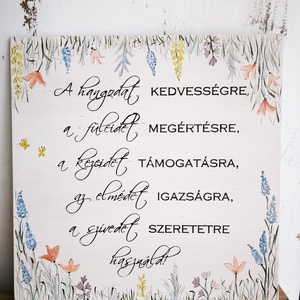 A hangodat KEDVESSÉGRE,
a füleidet MEGÉRTÉSRE,
a kezeidet TÁMOGATÁSRA,
az elmédet IGAZSÁGRA,
a szívedet SZERETETRE
használd!